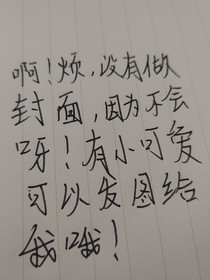 啊！烦，没有做
封面，因为不会
呀！有小可爱
可以发图给
我哦！